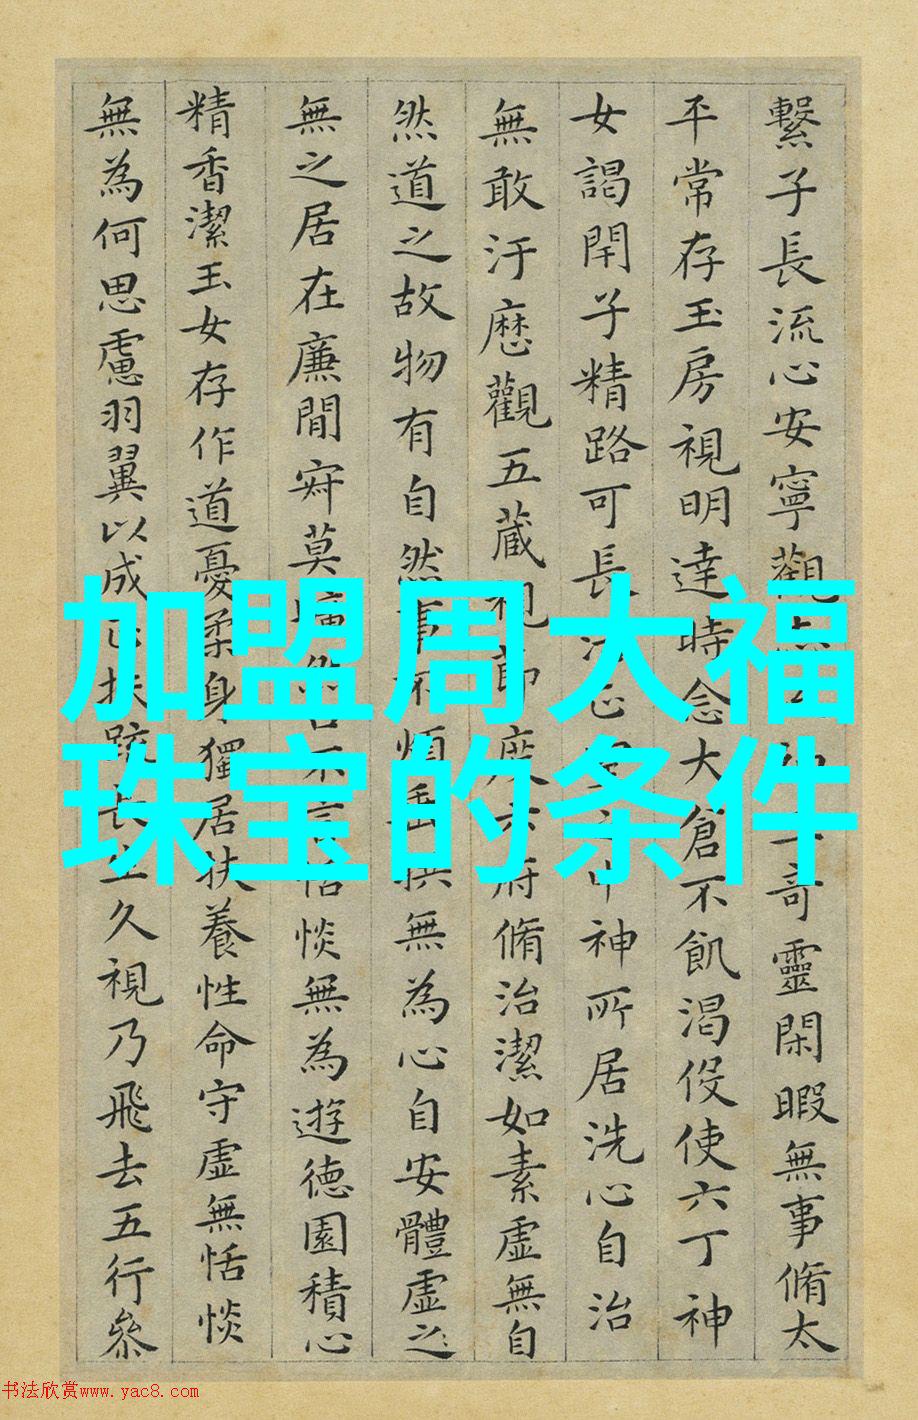 繫子長流心安寧觀奇靈閑暇無事脩太
平常存玉房視明達時念大倉不飢渴伇使六丁神
女謁閇子精路可長中神所居洗心自治
無敢汙歷觀五藏視節度六府脩治潔如素虛無自
然道之故物有自然事不煩垂拱無為心自安體虛之
無之居在廉閒寂莫不言恬惔無為遊德園積心
精香潔玉女存作道憂柔身獨居扶養性命守虛無恬惔
無為何思慮羽翼以成正扶疏長生久視乃飛去五行參
加盟周大福
珠宝的条件
书法欣赏www.yac8.com